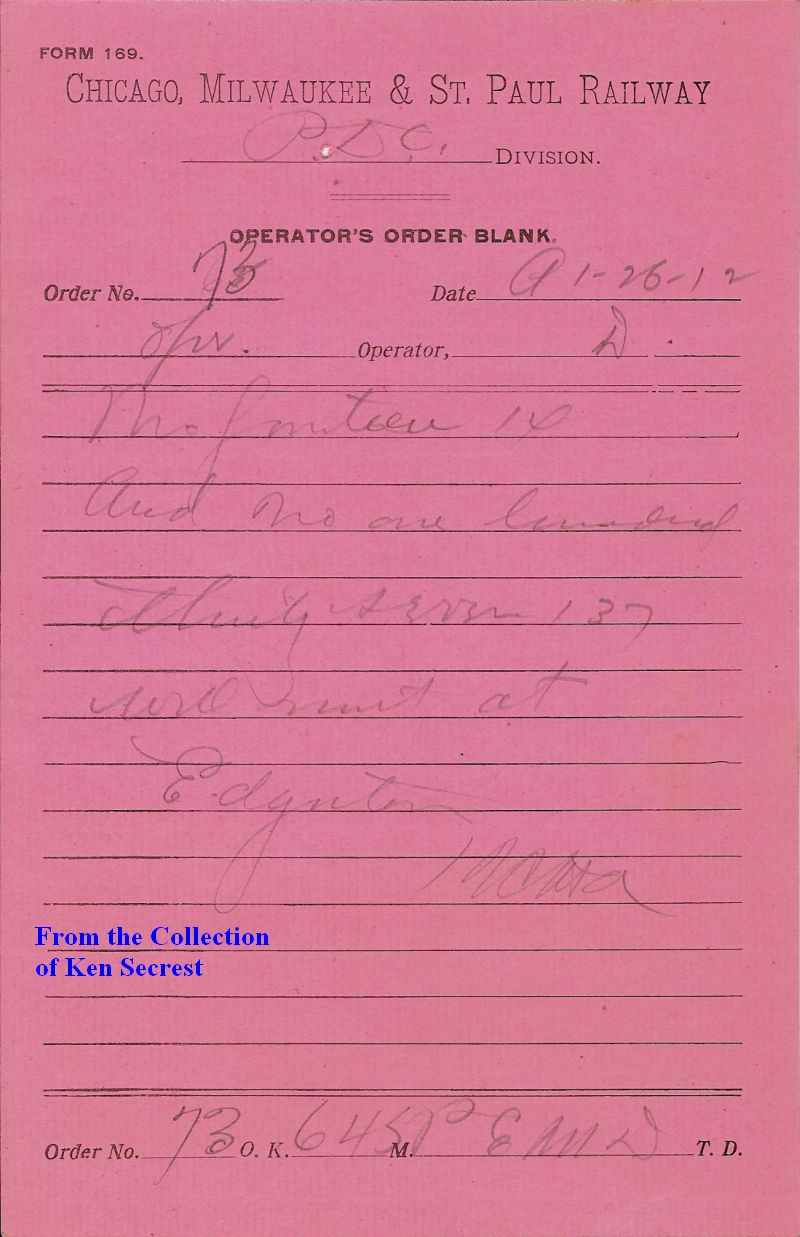 FORM 169.
CHICAGO, MILWAUKEE & ST. PAUL RAILWAY
P.D.C. DIVISION.
OPERATOR'S ORDER BLANK.
Order No. 73 Date 1-26-12
Opr. Operator, D.
No fourteen 14
And No one hundred
thirty seven 137
will meet at
Edgnton
From the Collection
of Ken Secrest
Order No. 73 O. K. 645P M. EMD T. D.